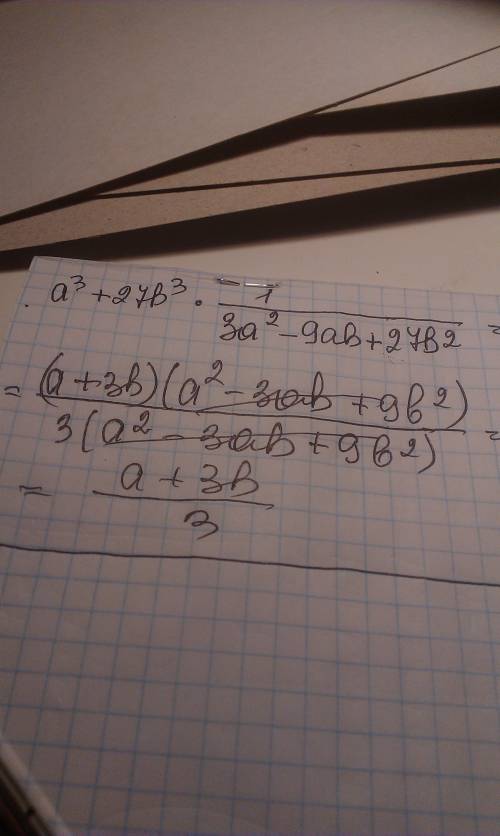 . a³ + 27b³ · 1 / 3a² - 9ab + 27b² =
= (a + 3b)(a² - 3ab + 9b²) / 3(a² - 3ab + 9b²) =
= a + 3b / 3